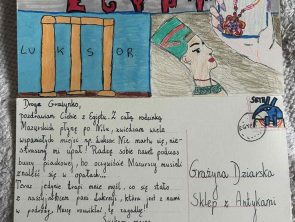 EGIPT
LUKSOR
Droga Grażynko,
pozdrawiam Ciebie z Egiptu. Z całą rodzinką
Mazurskich płynę po Nilu, zwiedzam wiele
wspaniałych miejsc np. Luksor. Nie martw się, nie-
straszny mi upał! Radzę sobie nawet podczas
burzy piaskowej, bo oczywiście Mazurscy musieli
znaleźć się w opałach...
Teraz zdjęcie trapi mnie myśl, co się stało
z naszyjnikiem pani Lukrecji, która jest z nami
w podróży. Mamy rozwikłać tę zagadkę!
Grażyna Dziarska
Sklep z Antykami
EGIPT